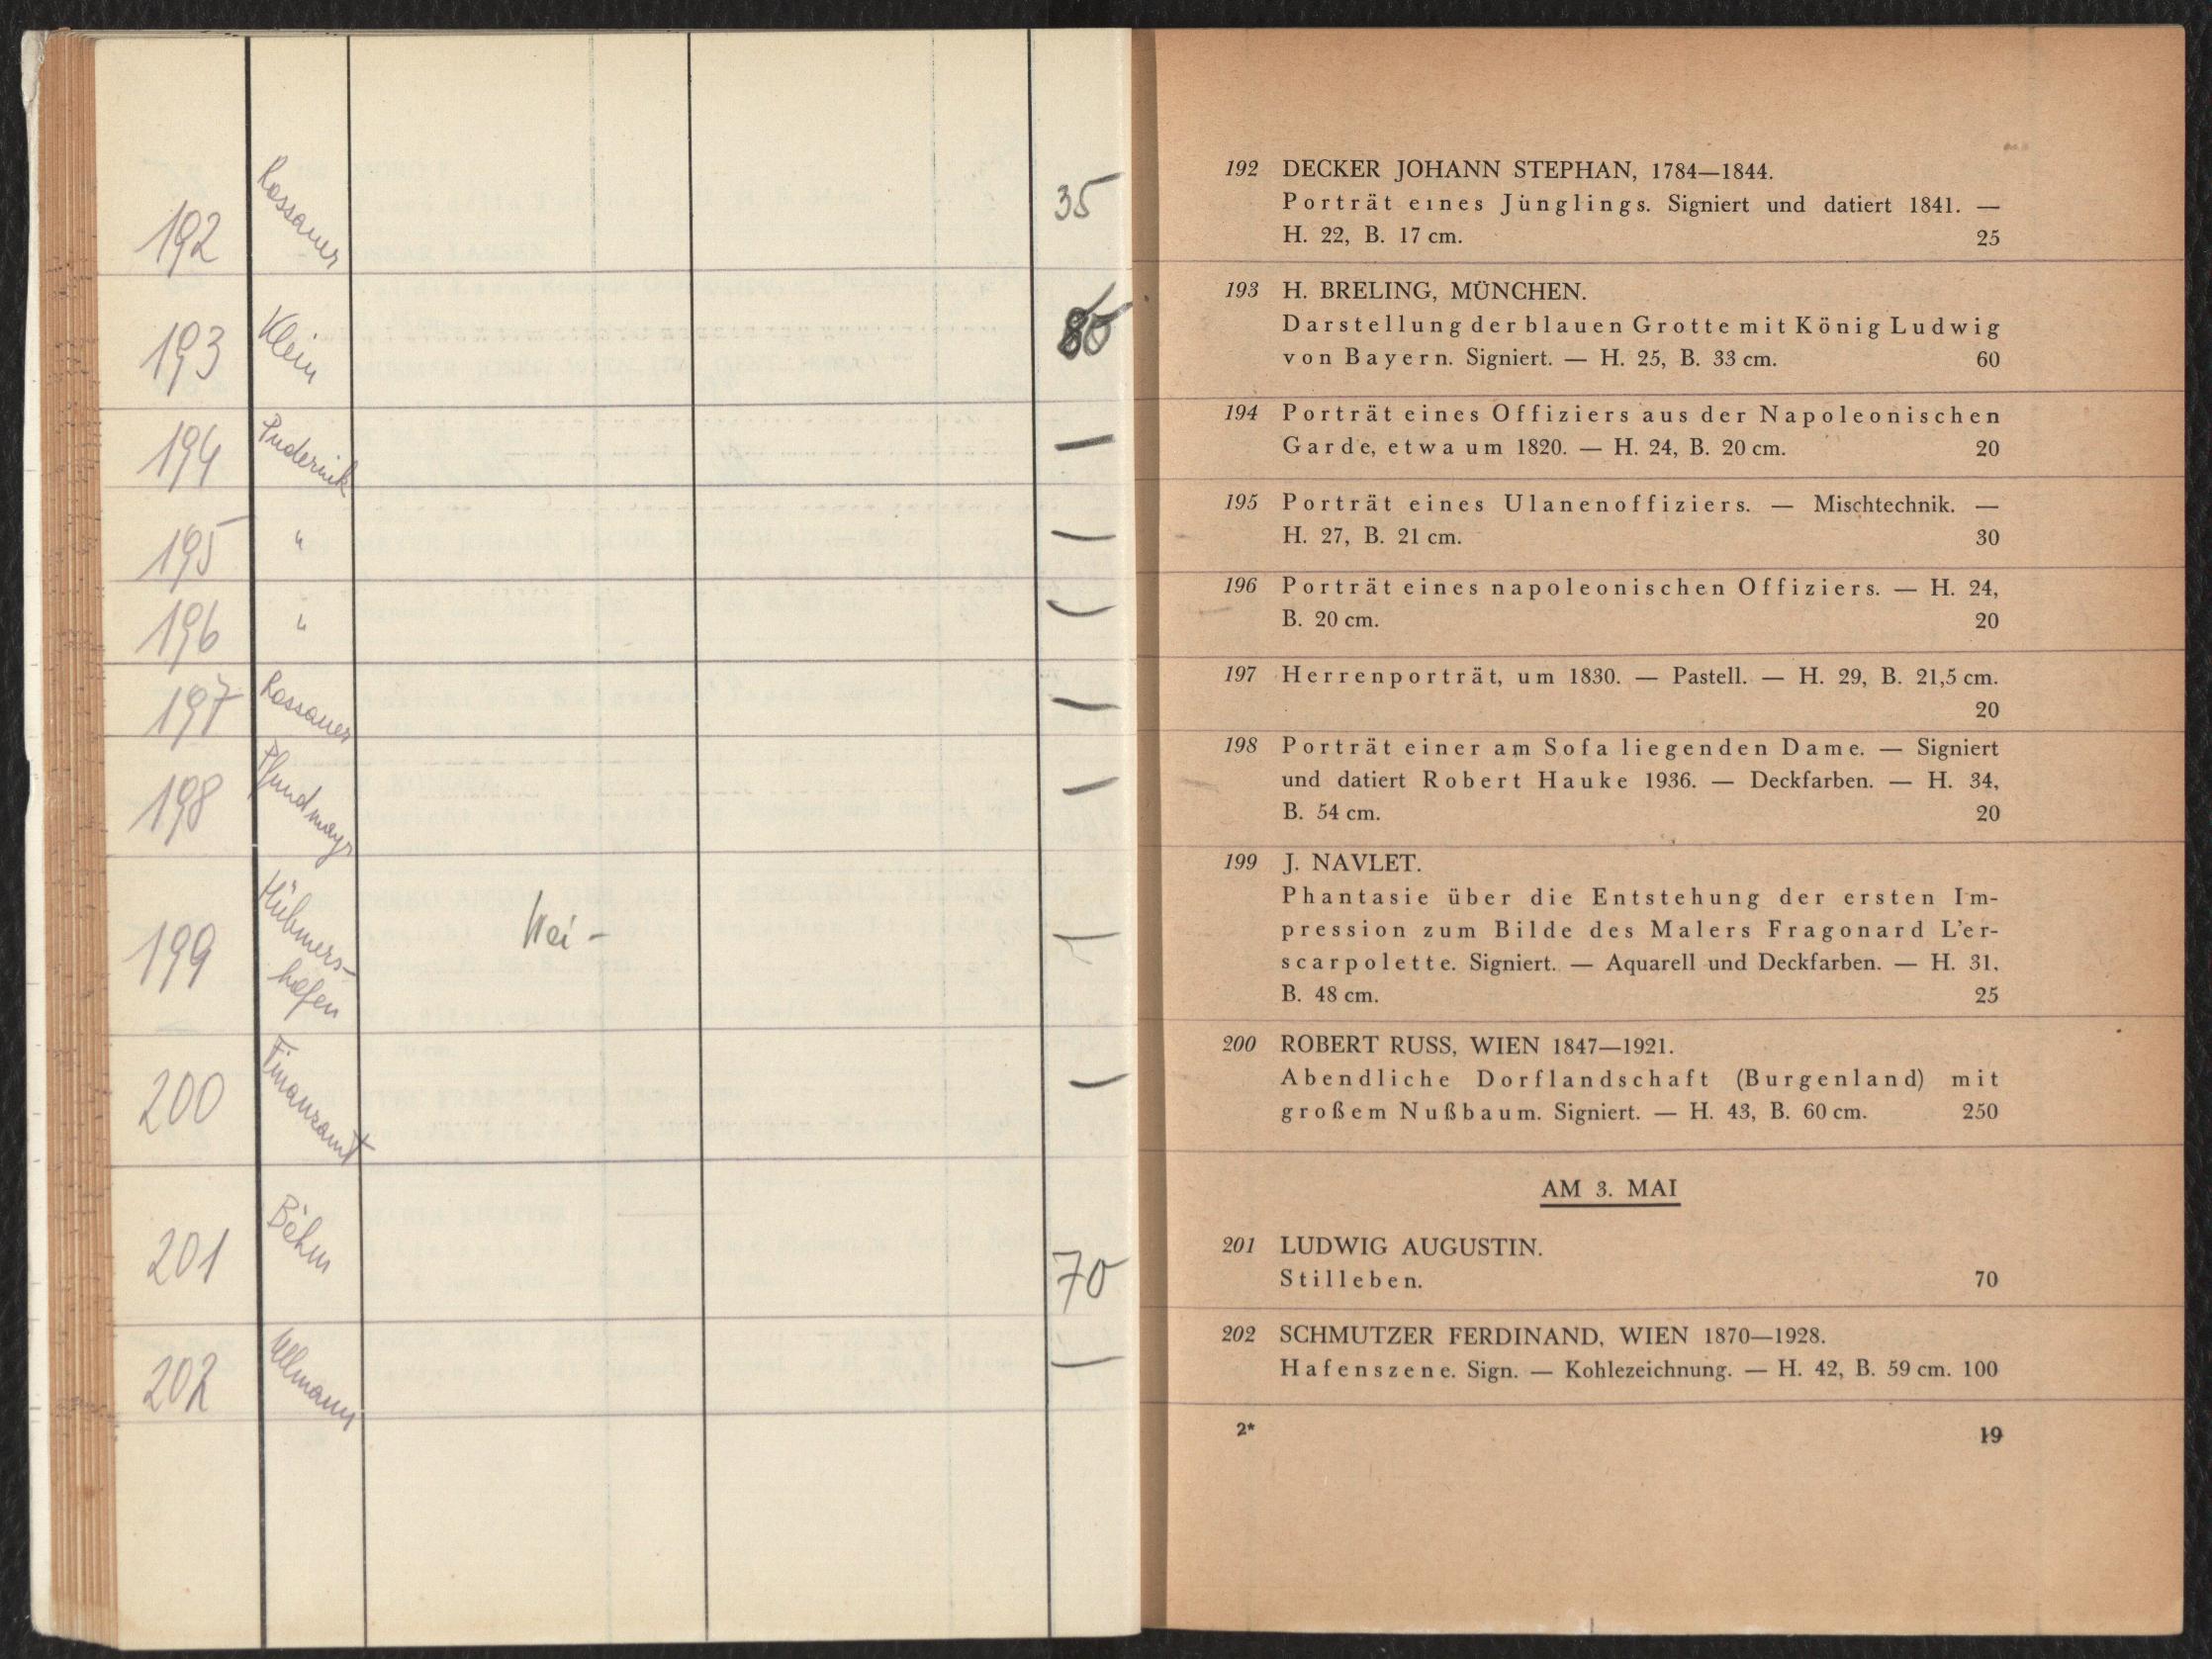 192 Rossauer 35
193 Klein 80
194 Pudernik —
195 " —
196 " —
197 Rossauer —
198 Pfundmayr —
199 Hübmers-
hofen —
200 Finanzamt —
201 Böhm 70
202 Ullmann —
192 DECKER JOHANN STEPHAN, 1784—1844.
Porträt eines Jünglings. Signiert und datiert 1841. —
H. 22, B. 17 cm. 25
193 H. BRELING, MÜNCHEN.
Darstellung der blauen Grotte mit König Ludwig
von Bayern. Signiert. — H. 25, B. 33 cm. 60
194 Porträt eines Offiziers aus der Napoleonischen
Garde, etwa um 1820. — H. 24, B. 20 cm. 20
195 Porträt eines Ulanenoffiziers. — Mischtechnik. —
H. 27, B. 21 cm. 30
196 Porträt eines napoleonischen Offiziers. — H. 24,
B. 20 cm. 20
197 Herrenporträt, um 1830. — Pastell. — H. 29, B. 21,5 cm.
20
198 Porträt einer am Sofa liegenden Dame. — Signiert
und datiert Robert Hauke 1936. — Deckfarben. — H. 34,
B. 54 cm. 20
199 J. NAVLET.
Phantasie über die Entstehung der ersten Im-
pression zum Bilde des Malers Fragonard L'er-
scarpolette. Signiert. — Aquarell und Deckfarben. — H. 31,
B. 48 cm. 25
200 ROBERT RUSS, WIEN 1847—1921.
Abendliche Dorflandschaft (Burgenland) mit
großem Nußbaum. Signiert. — H. 43, B. 60 cm. 250
AM 3. MAI
201 LUDWIG AUGUSTIN.
Stilleben. 70
202 SCHMUTZER FERDINAND, WIEN 1870—1928.
Hafenszene. Sign. — Kohlezeichnung. — H. 42, B. 59 cm. 100
2* 19